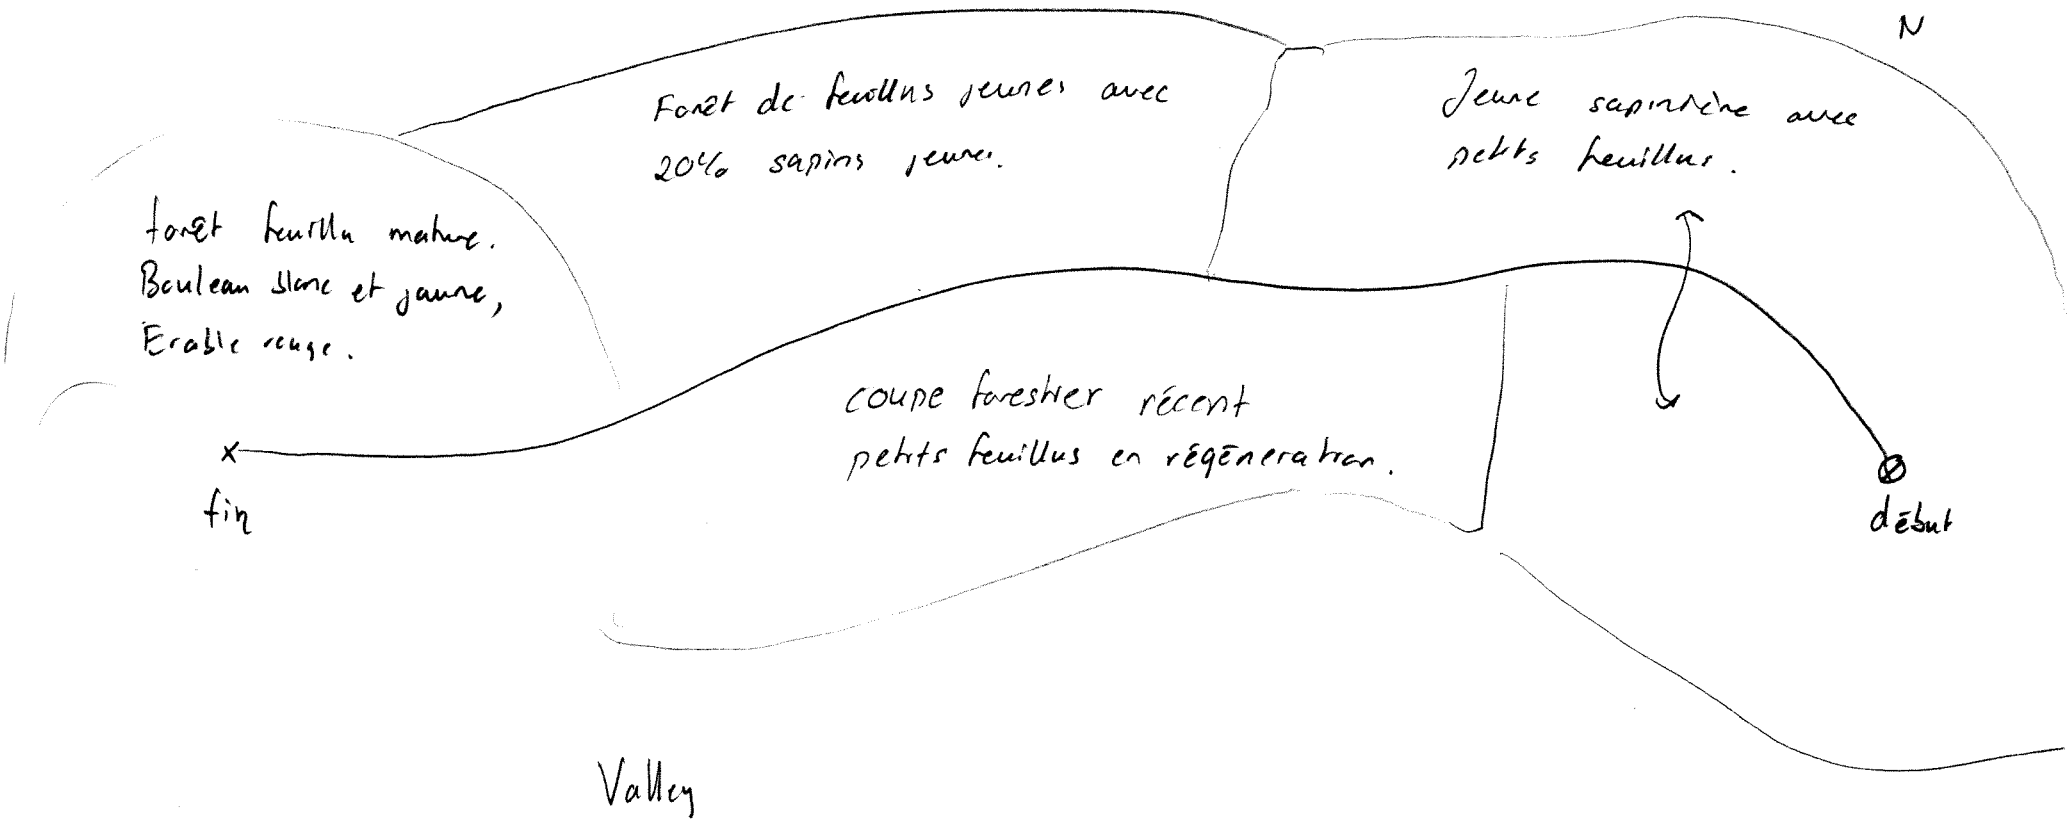 N
Forêt de feuillus jeunes avec
20% sapins jeunes.
Jeune sapinière avec
petits feuillus.
forêt feuillu mature.
Bouleau blanc et jaune,
Erable rouge.
coupe forestier récent
petits feuillus en régéneration.
x
fin
début
Valley